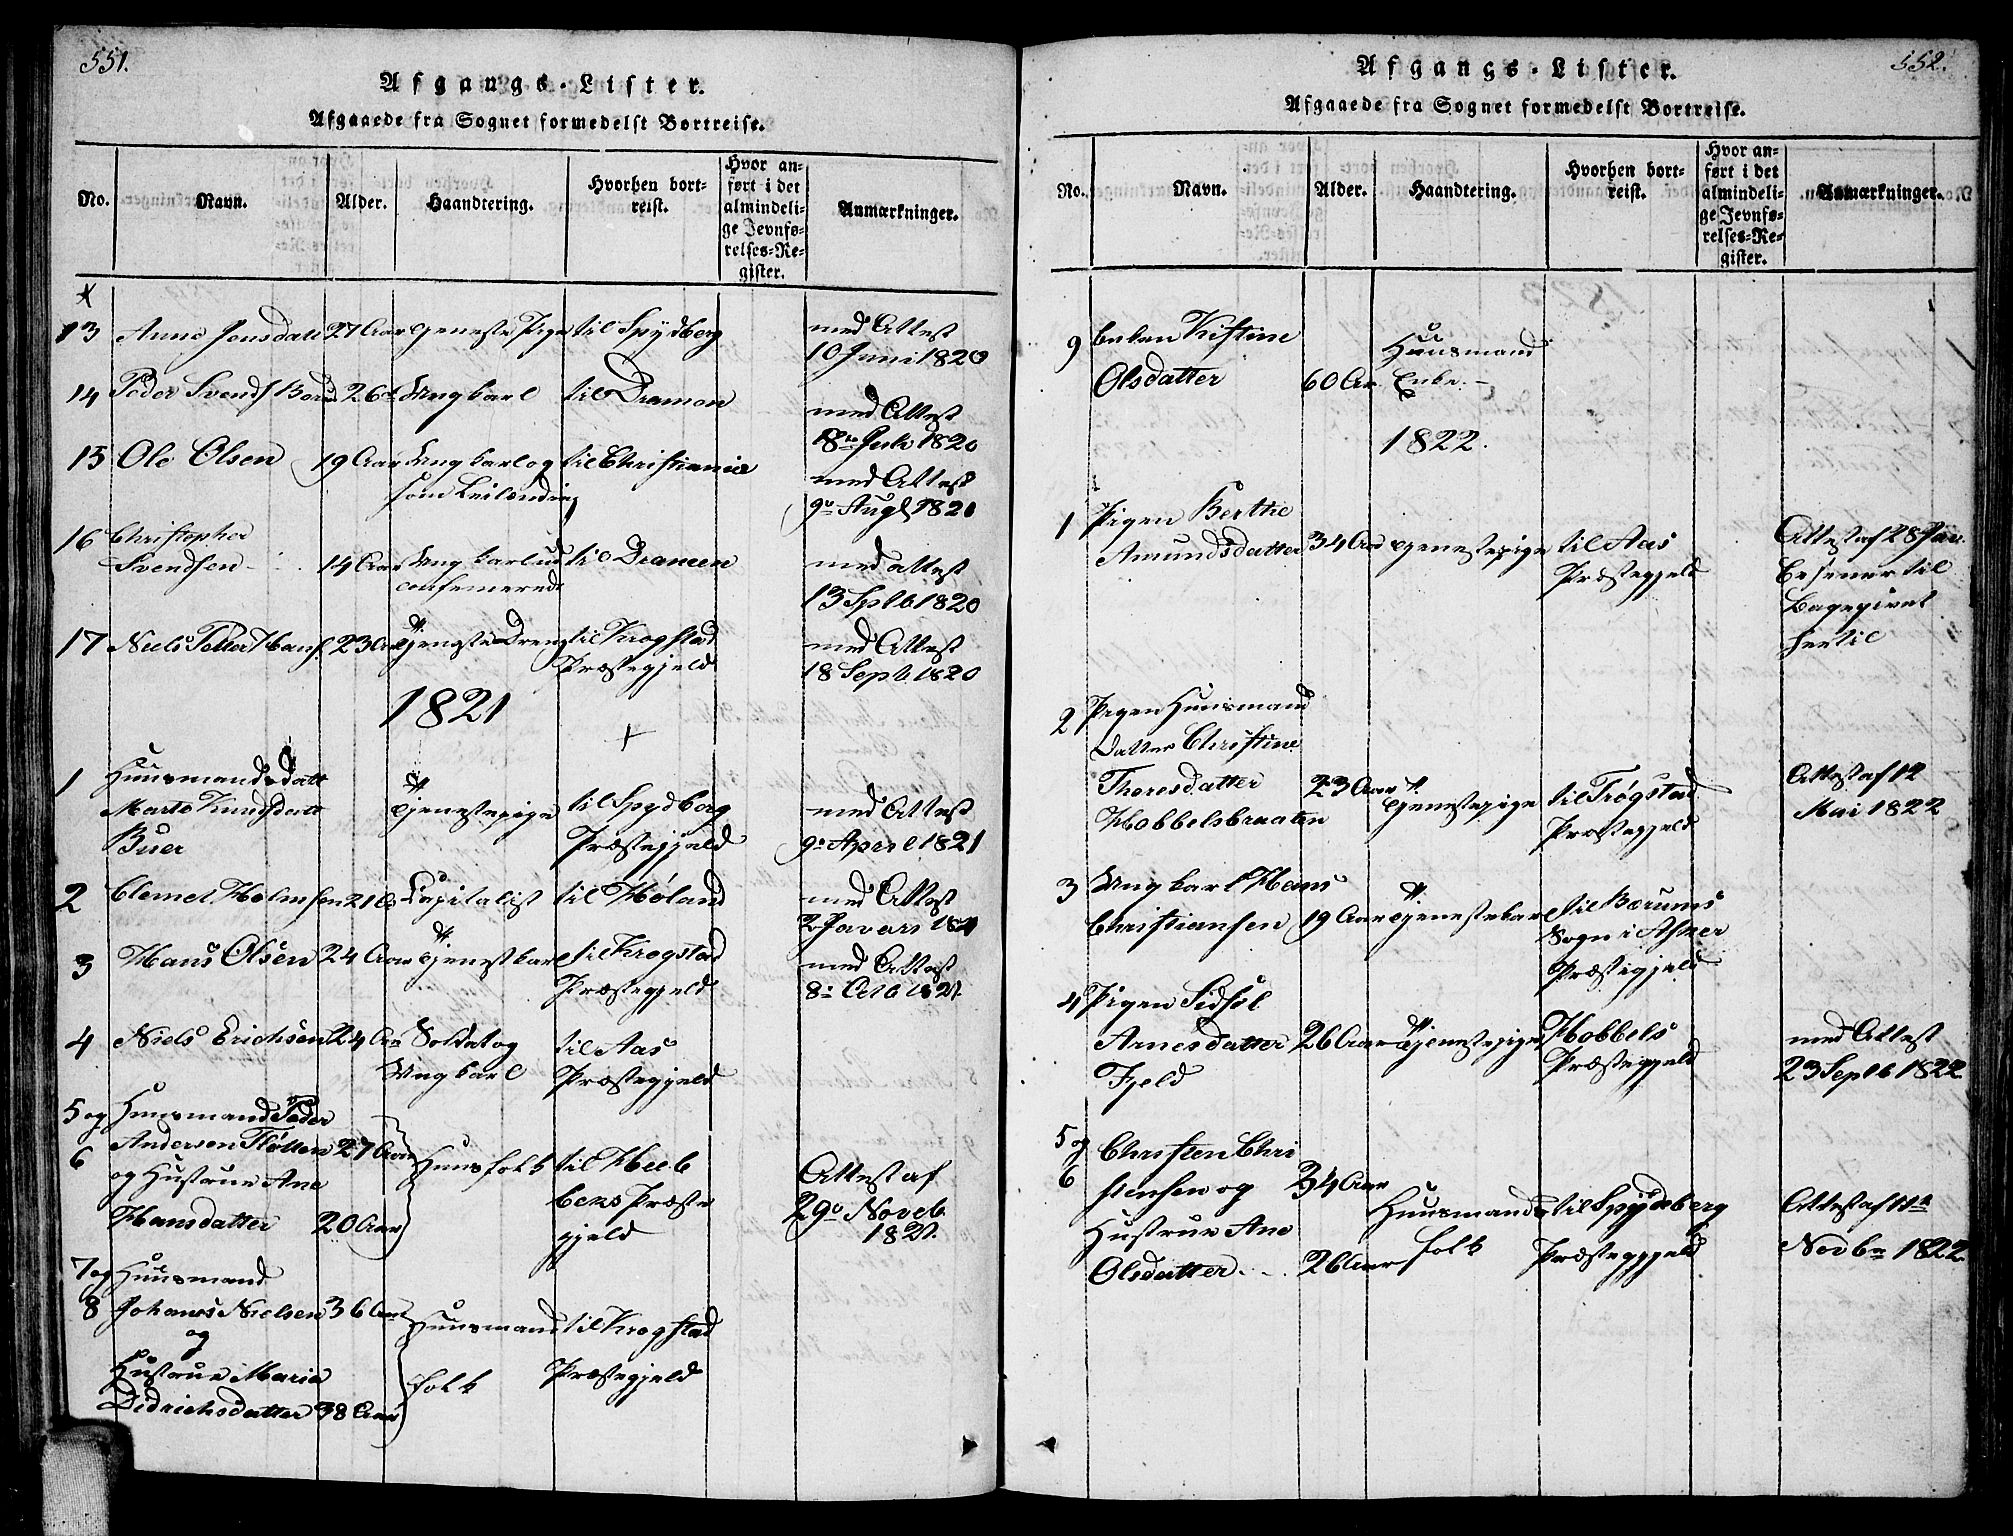 551.
Afgangs-Lister.
Afgaaede fra Sognet formedelst Bortreise.
No. Navn. Alder. Haandtering. Hvorhen bortreist. Hvor anført i det almindelige Jevnførelses-Register. Anmærkninger.
13 Anne Jonsdatt 27 Aar tjeneste Pige til Spydberg med Attest
10 Juni 1820
14 Peder Svends 26 Ung karl til Dramen med Attest
18de Juli 1820
15 Ole Olsen 19 Aar Ung karl og til Christiania med Attest
som Leilænding 9de Augl 1820
16 Christopher
Svendsen 14 Aar Ung karl ud til Dramen med attest
confermered 13 Sptb 1820
17 Niels Petter Hans. 23 Aar tjenste Dreng til Krogstad med Attest
Præstegjeld 18 Septb 1820
1821
1 Huusmandsdatt
Marte Knudsdatt tjenestepige til Spydberg med Attest
Buer Præstegjeld 9de April 1821
2 Clemet Holmsen 21 Capitalist til Høland med Attest
2 Javari 1821
3 Hans Olsen 24 Aar tjenestkarl til Krogstad med Attest
Præstegjeld 8de Octb 1821
4 Niels Erichsen 24 Aar Soldat og til Aas
Ung karl Præstegjeld
5 og Huusmand Peder
6 Andersen Fløtten 27 Aar Huusfolk til
og Hustrue Ane Præste Attest af
Hansdatter 20 Aar gjeld 29de Noveb
1821.
7 og Huusmand
8 Johanes Nielsen 36 Aar Huusmand til Krogstad
og
Hustrue Maria folk Præstegjeld
Didrichsdatter 38 Aar
552.
Afgangs-Lister.
Afgaaede fra Sognet formedelst Bortreise.
No. Navn. Alder. Haandtering. Hvorhen bortreist. Hvor anført i det almindelige Jevnførelses-Register. Anmærkninger.
9 Huusmand
Olsdatter 60 Aar Enke.
1822.
1 Pigen Berthe
Amundsdatter 34 Aar tjenestepige til Aas Attest af 28 Jan.
Præstegjeld til
hertil
2 Pigen Huusmand
Datter Christine
Thoresdatter 23 Aar tjenestepige til Trøgstad Attest af 12
Hobbelsbraaten Præstegjeld Mai 1822
3 Ung karl Hans
Christiansen 19 Aar tjenestekarl til Bærums
Sogn i Asker
Præstegjeld
4 Pigen Sidsel
Arnesdatter 26 Aar tjenestepige Hobbels med Attest
Fjeld Præstegjeld 23 Septb 1822
5 og Christen Chri
6 stensen og 34 Aar
Hustrue Ane Huusmands til Spydeberg Attest af 11te
Olsdatter 26 Aar folk Præstegjeld Novbr 1822